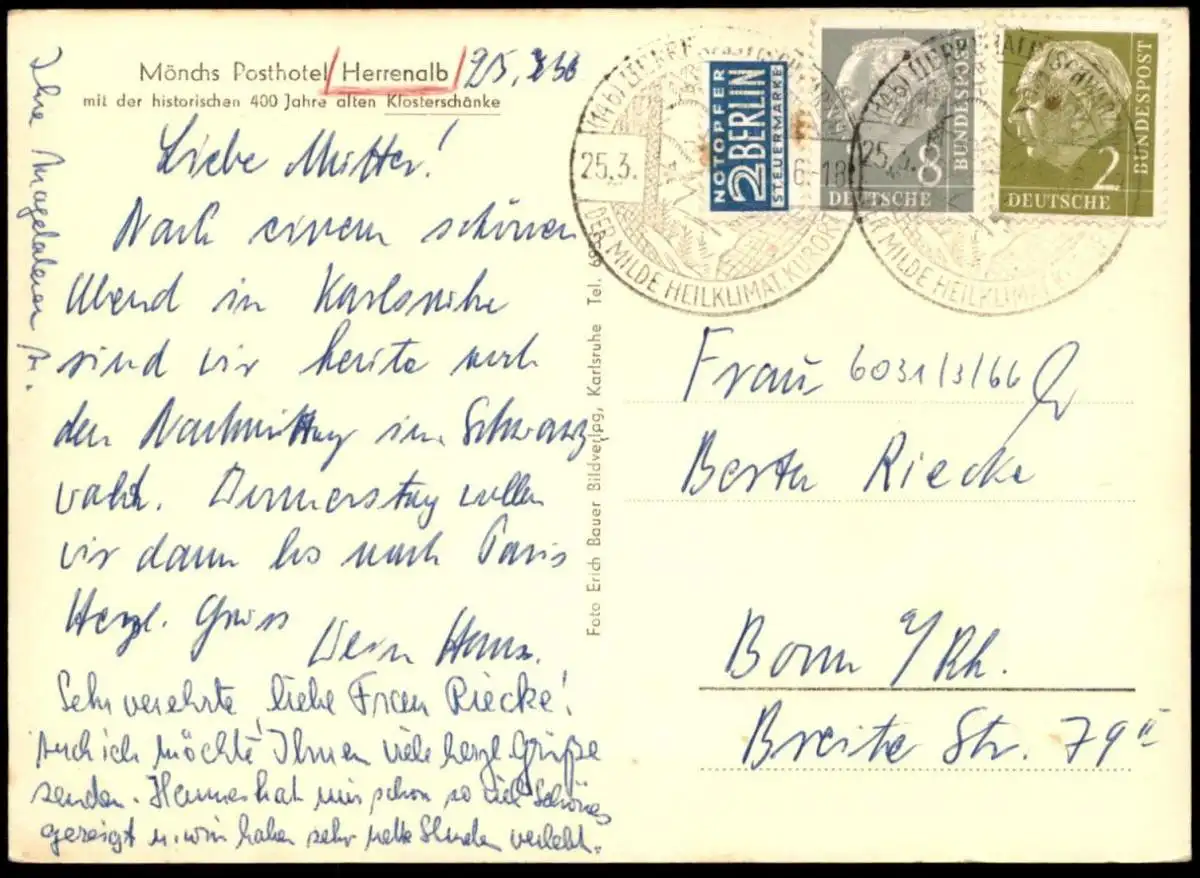 Mönchs Posthotel Herrenalb 25.3.56
mit der historischen 400 Jahre alten Klosterschänke
Liebe Mutter!
Nach einem schönen
Abend in Karlsruhe
sind wir heute nach
den Nachmittag im Schwarz
wald. Donnerstag wollen
wir dann los nach Paris
Herzl. Gruss
Dein Hans.
Sehr verehrte, liebe Frau Riecke!
Auch ich möchte Ihnen viele herzl. Grüße
senden. Hannes hat mir schon so viel Schönes
gezeigt u. wir haben sehr nette Stunden verlebt.
Ihre Magdalena
Foto Erich Bauer Bildverlag, Karlsruhe Tel. 69
25.3.
DER MILDE HEILKLIMAT. KURORT
NOTOPFER
2 BERLIN
STEUERMARKE
8
DEUTSCHE
BUNDESPOST
2
DEUTSCHE
BUNDESPOST
25.3.
DER MILDE HEILKLIMAT. K
Frau 6031/3/66
Berta Riecke
Bonn a/Rh.
Breite Str. 79 II